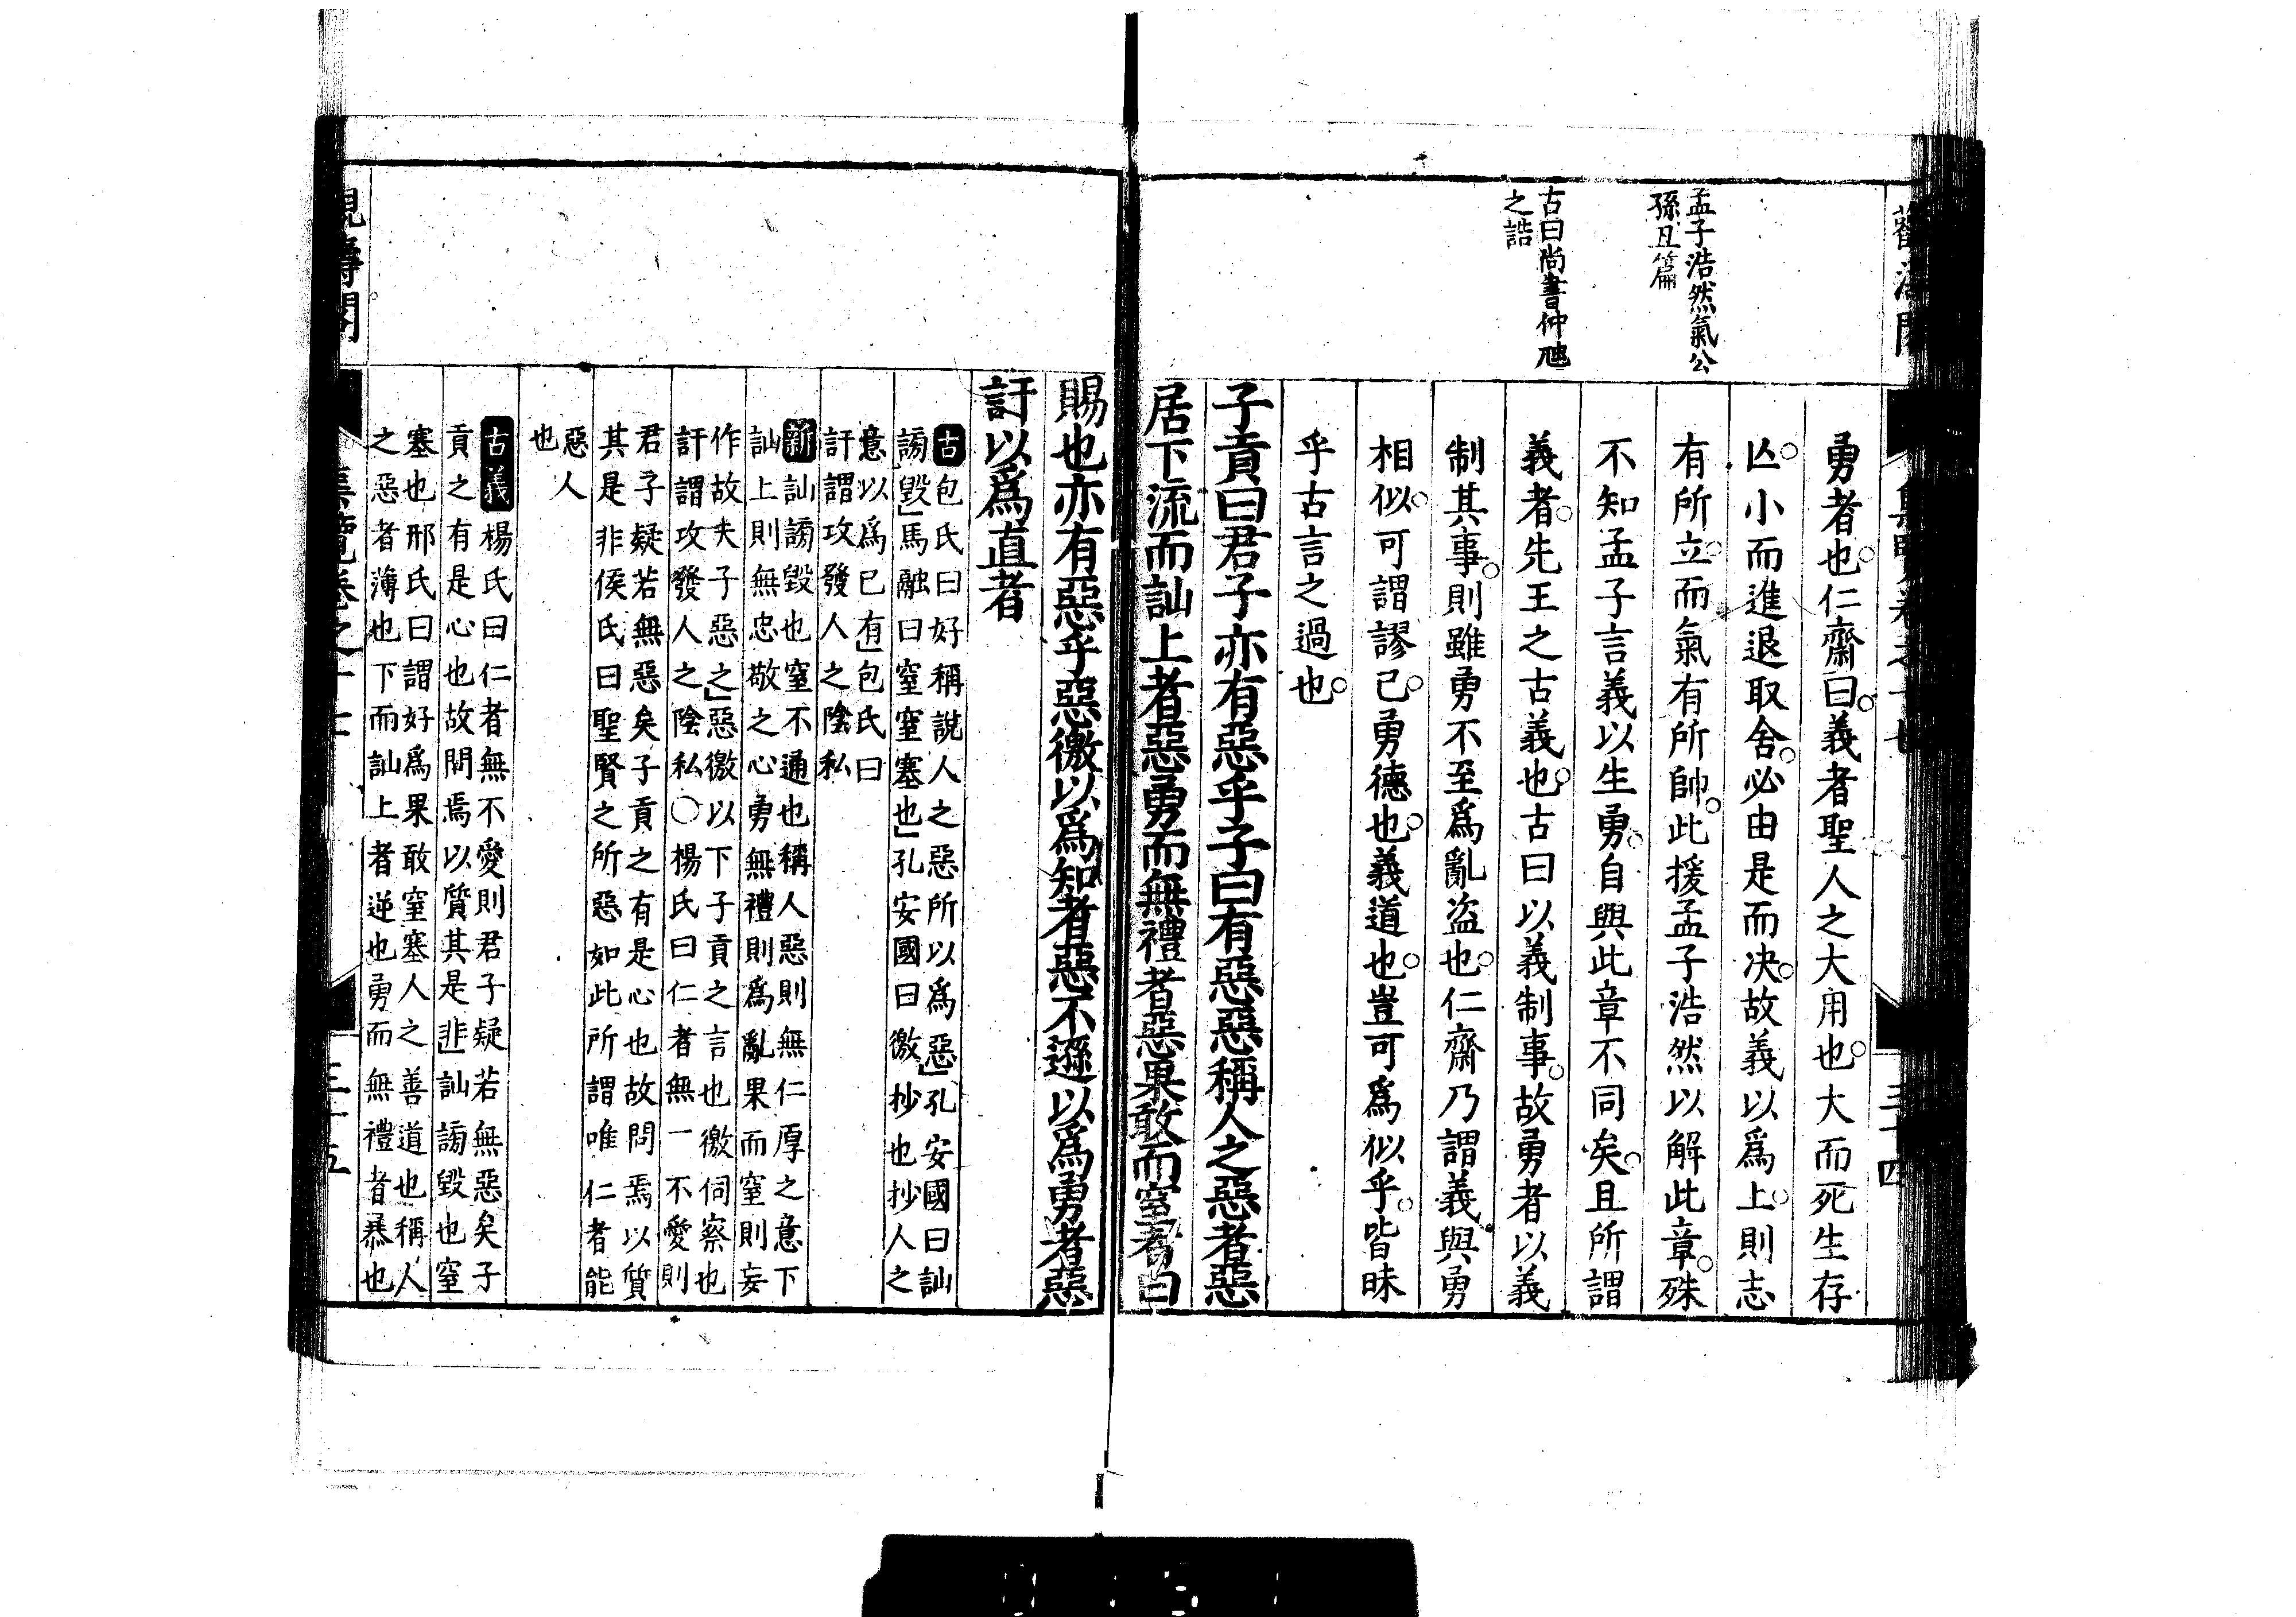 孟子浩然氣公
孫丑篇
古曰尚書仲虺
之誥
勇者也。仁齋曰。義者聖人之大用也。大而死生存
亾。小而進退取舍。必由是而决。故義以爲上。則志
有所立。而氣有所帥。此援孟子浩然以解此章。殊
不知孟子言義以生勇。自與此章不同矣。且所謂
義者。先王之古義也。古曰以義制事。故勇者以義
制其事。則雖勇不至爲亂盜也。仁齋乃謂義與勇
相似。可謂謬已。勇德也。義道也。豈可爲似乎。皆昧
乎古言之過也。
子貢曰君子亦有惡乎子曰有惡惡稱人之惡者惡
居下流而訕上者惡勇而無禮者惡果敢而窒者曰
賜也亦有惡乎惡徼以爲知者惡不遜以爲勇者惡
訐以爲直者
古包氏曰好稱說人之惡所以爲惡」孔安國曰訕
謗毀」馬融曰窒窒塞也」孔安國曰徼抄也抄人之
意以爲已有」包氏曰
訐謂攻發人之陰私
新訕謗毀也窒不通也稱人惡則無仁厚之意下
訕上則無忠敬之心勇無禮則爲亂果而窒則妄
作故夫子惡之」惡徼以下子貢之言也徼伺察也
訐謂攻發人之陰私○楊氏曰仁者無一不愛則
君子疑若無惡矣子貢之有是心也故問焉以質
其是非侯氏曰聖賢之所惡如此所謂唯仁者能
惡人
也
古義楊氏曰仁者無不愛則君子疑若無惡矣子
貢之有是心也故問焉以質其是非」訕謗毀也窒
塞也邢氏曰謂好爲果敢窒塞人之善道也稱人
之惡者薄也下而訕上者逆也勇而無禮者暴也
集覽卷之十七
三十五